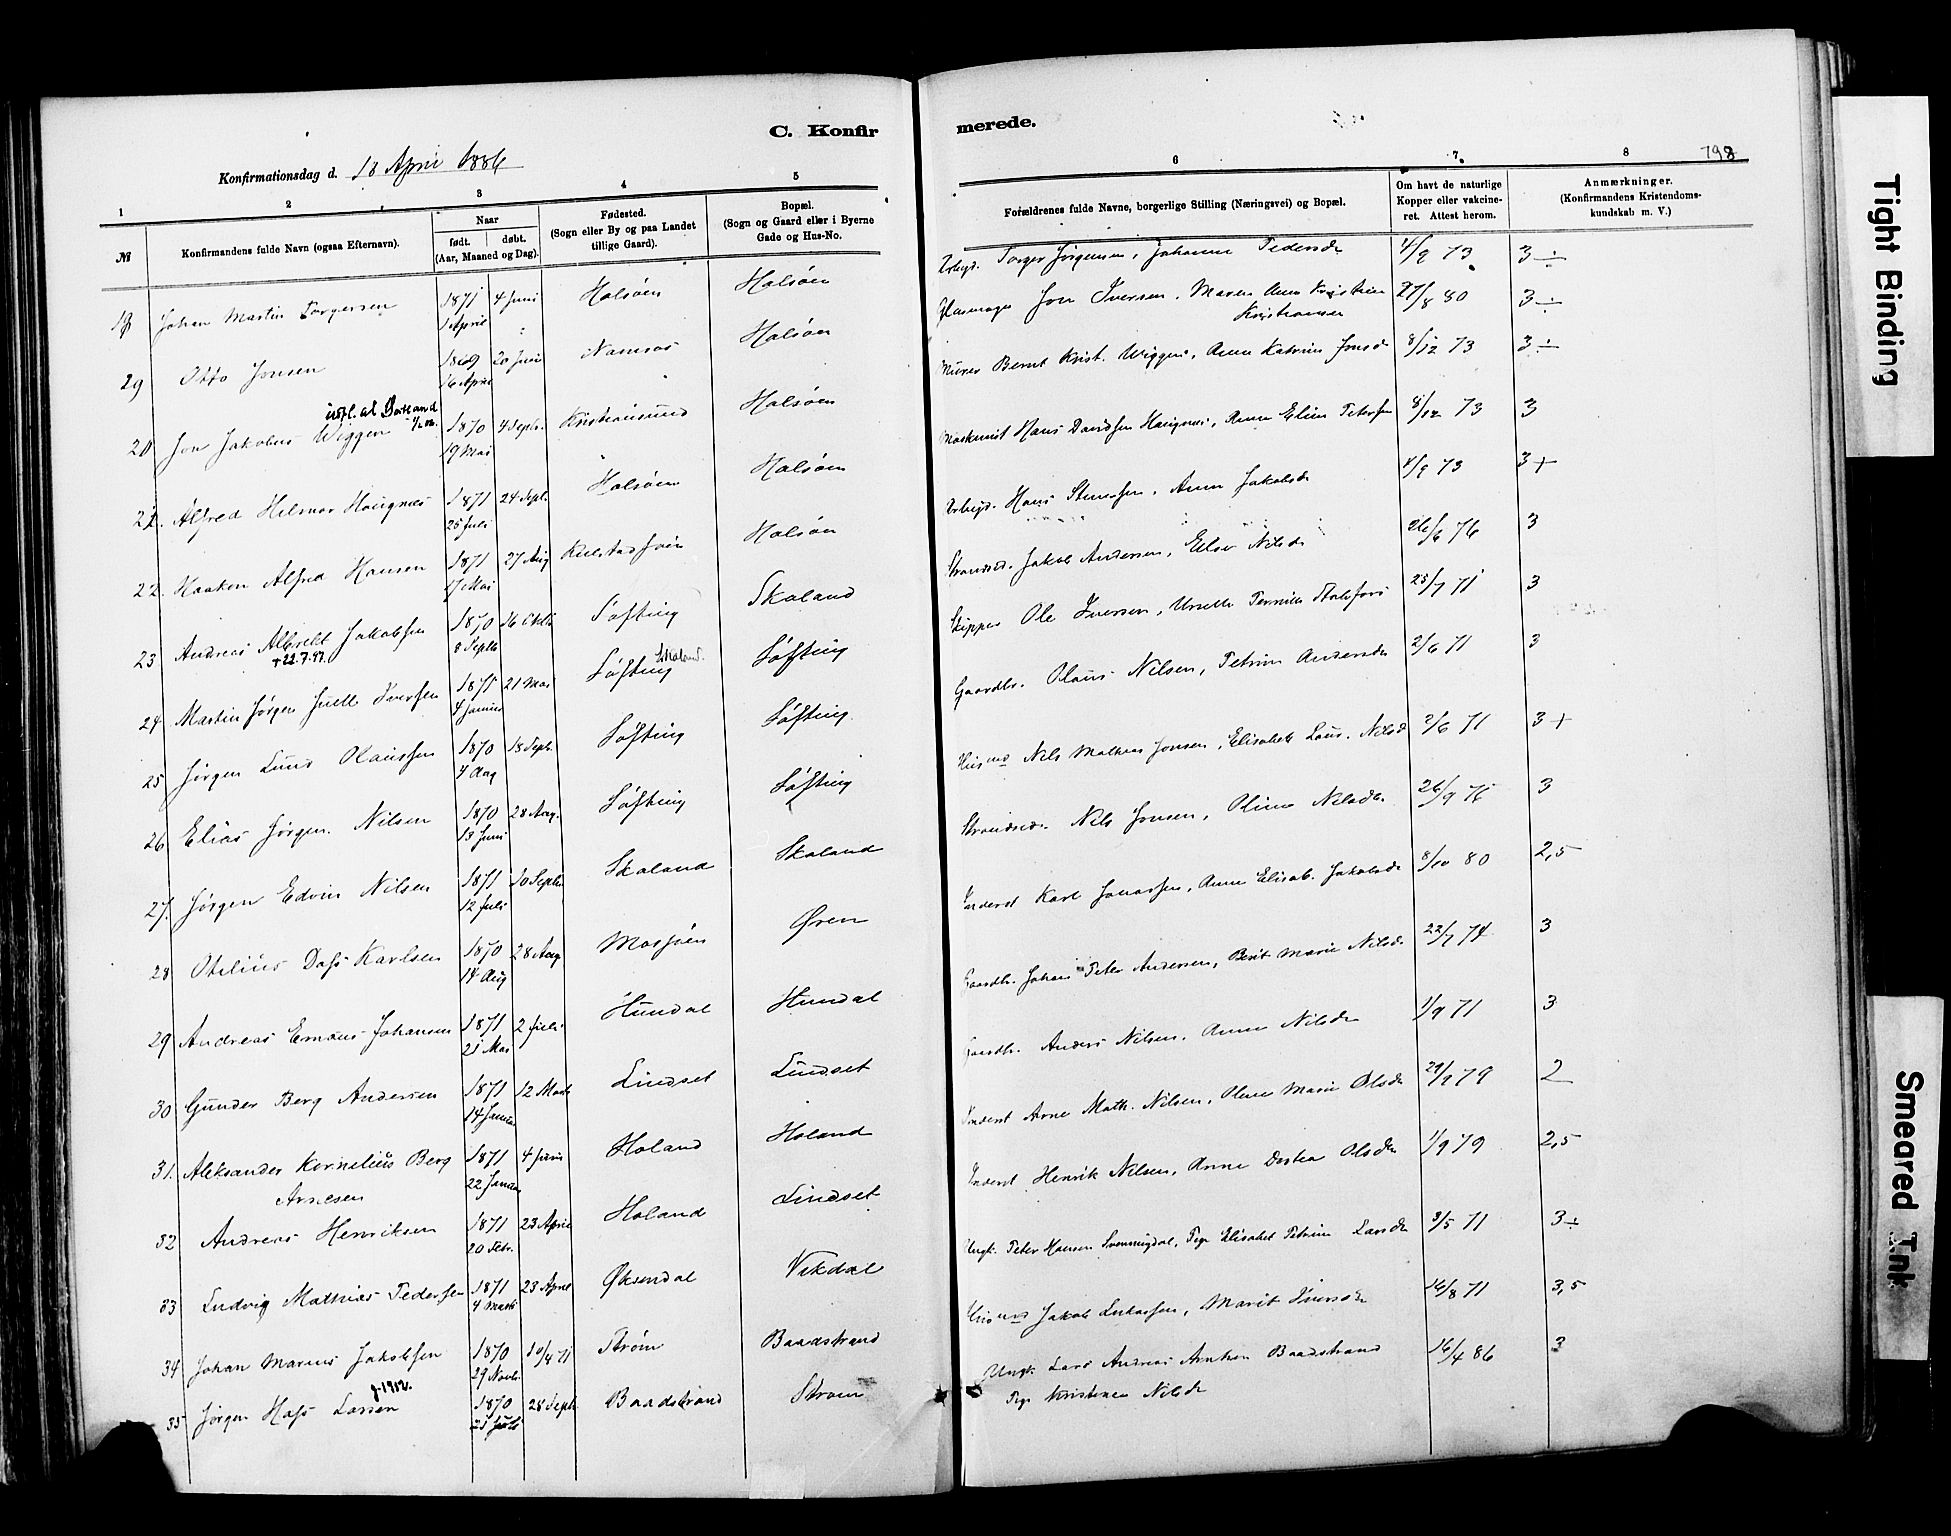 C. Konfir
merede.
Konfirmationsdag d. 18 April 1886
798
1 2 3 4 5 6 7. 8
№ Konfirmandens fulde Navn (ogsaa Efternavn).
Naar
født. døbt.
(Aar, Maaned og Dag).
Fødested.
(Sogn eller By og paa Landet
tillige Gaard).
Bopæl.
(Sogn og Gaard eller i Byerne
Gade og Hus-No.
Forældrenes fulde Navne, borgerlige Stilling (Næringsvei) og Bopæl.
Om havt de naturlige
Kopper eller vakcine-
ret. Attest herom.
Anmærkninger.
(Konfirmandens Kristendoms-
kundskab m. V.)
Johan Martin Torgersen 1871 4 Juni Halsøen Halsøen Arbejd. Torger Jørgensen, Johanna Pedersdr 4/9 73 3 ÷
1 April
29 Otto Jonsen 1869 20 Juni Namsos Halsøen Jon Iversen, Maren Anna Kristine 27/8 80 3 ÷
16 April
Kristiansen
20 Jon Jakobus Wiggen 1870 4 Septr. Kristiansund Halsøen Murer Bernt Krist. Wiggen, Anna Katrine Jonsd 8/12 73 3 ÷
19 Mai
21. Alfred Hilmar Haugnæs 1871 24 Septr. Halsøen Halsøen Maskinist Hans Davidsen Haugnæs, Anna Elina Petersen 8/12 73 3
25 Juli
22. Haakon Alfred Hansen 1871 27 Aug Halsøen Arbejd. Hans Steensen, Anna Jakobsdr 4/9 73 3 +
17 Mai
23 Andreas Albrekt Jakobsen 1870 16 Oktb. Søfting Skaland Strandsid. Jakob Andersen, Elsa Nilsdr 26/6 76 3
+22.7.97. 8 Septb
24 Martin Jørgen Juell Iversen 1871 21 Mai Søfting Skaland. Søfting Skipper Ole Iversen, Pernille 25/7 71 3
4 Januar
25 Jørgen Lund Olaussen 1870 18 Septr. Søfting Søfting Gaardbr. Olaus Nilsen, Petrine Andersdr 2/6 71 3
4 Aug
26 Elias Jørgen Nilsen 1870 28 Aug. Søfting Søfting Husmd Nils Mathias Jonsen, Elisabeth Laur. Nilsd 2/6 71 3 +
13 Juni
27. Jørgen Edvin Nilsen 1871 10 Septbr Skaland Skaland Strandsid. Nils Jonsen, Oline Nilsdr. 26/9 76 3
12 Juli
28 Otelius Dass Karlsen 1870 28 Aug Mosjøen Øren Inderst Karl Jonassen, Anne Elisab. Jakobsdr 8/10 80 2,5
14 Aug
29 Andreas Emaus Johansen 1871 2 Juli Hundal Hundal Gaardbr. Johan Peter Andersen, Berit Marie Nilsdr 22/7 74 3
21 Mai
30 Gunder Berg Andersen 1871 12 Marts Lindset Lindset Gaardbr. Anders Nilsen, Anne Nilsdr 1/9 71 3
14 Januar
31. Aleksander Kornelius Berg 1871 4 Juni Holand Holand Inderst Arne Math. Nilsen, Olene Marie Olsdr 29/9 79 2
Arnesen 22 Januar
32 Andreas Henriksen 1871 23 April Holand Lindset Inderst Henrik Nilsen, Anne Dortea Olsdr 1/9 79 2,5
20 Febr.
33 Ludvig Mathias Pedersen 1871 23 April Øksendal Vikdal Ungk. Peter Hansen Svenningdal, Pige Elisabet Petrine Larsdr 3/5 71 3 ÷
4 Marts
34 Johan Marius Jakobsen 1870 10/4 71 Strøm Baadstrand Husmd Jakob Larsen, Marit Iversdr 16/8 71 3,5
29 Novb.
35 Jørgen Hass Larsen 1870 28 Septb Baadstrand Strøm Ungk. Lars Andreas Arntsen Baadstrand 16/4 86 3
21 Juli
Pige Kristine Nilsdr
Tight Binding
Smeared Ink